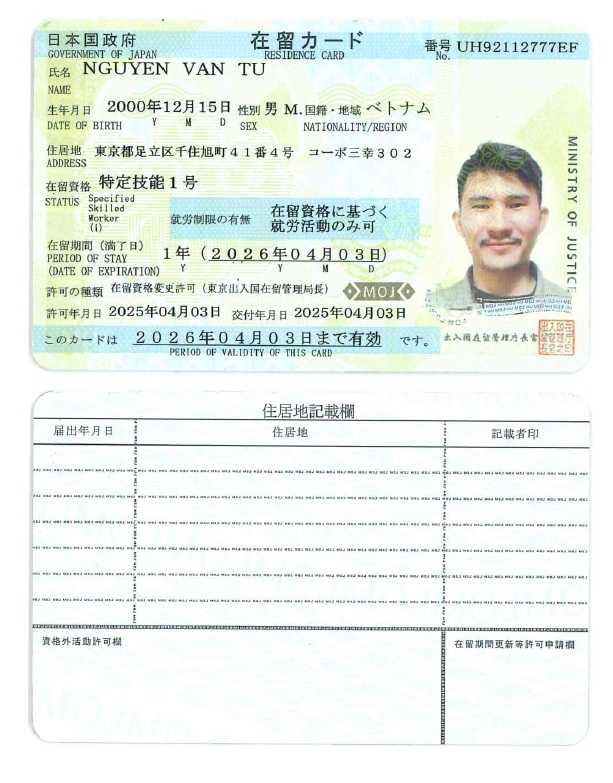 日本国政府 在留カード 番号 UH92112777EF
GOVERNMENT OF JAPAN RESIDENCE CARD No.
氏名 NGUYEN VAN TU
NAME
生年月日 2000年12月15日 性別 男 M. 国籍・地域 ベトナム
DATE OF BIRTH Y M D SEX NATIONALITY/REGION
住居地 東京都足立区千住旭町41番4号 コーポ三幸302
ADDRESS
在留資格 特定技能1号
STATUS Specified
Skilled
Worker
(i)
就労制限の有無 在留資格に基づく
就労活動のみ可
在留期間(満了日) 1年(2026年04月03日)
PERIOD OF STAY Y Y M D
(DATE OF EXPIRATION)
許可の種類 在留資格変更許可(東京出入国在留管理局長) MOJ
許可年月日 2025年04月03日 交付年月日 2025年04月03日
このカードは 2026年04月03日まで有効 です。
PERIOD OF VALIDITY OF THIS CARD
MINISTRY OF JUSTICE
出入国在留管理庁長官
住居地記載欄
届出年月日 住居地 記載者印
資格外活動許可欄 在留期間更新等許可申請欄